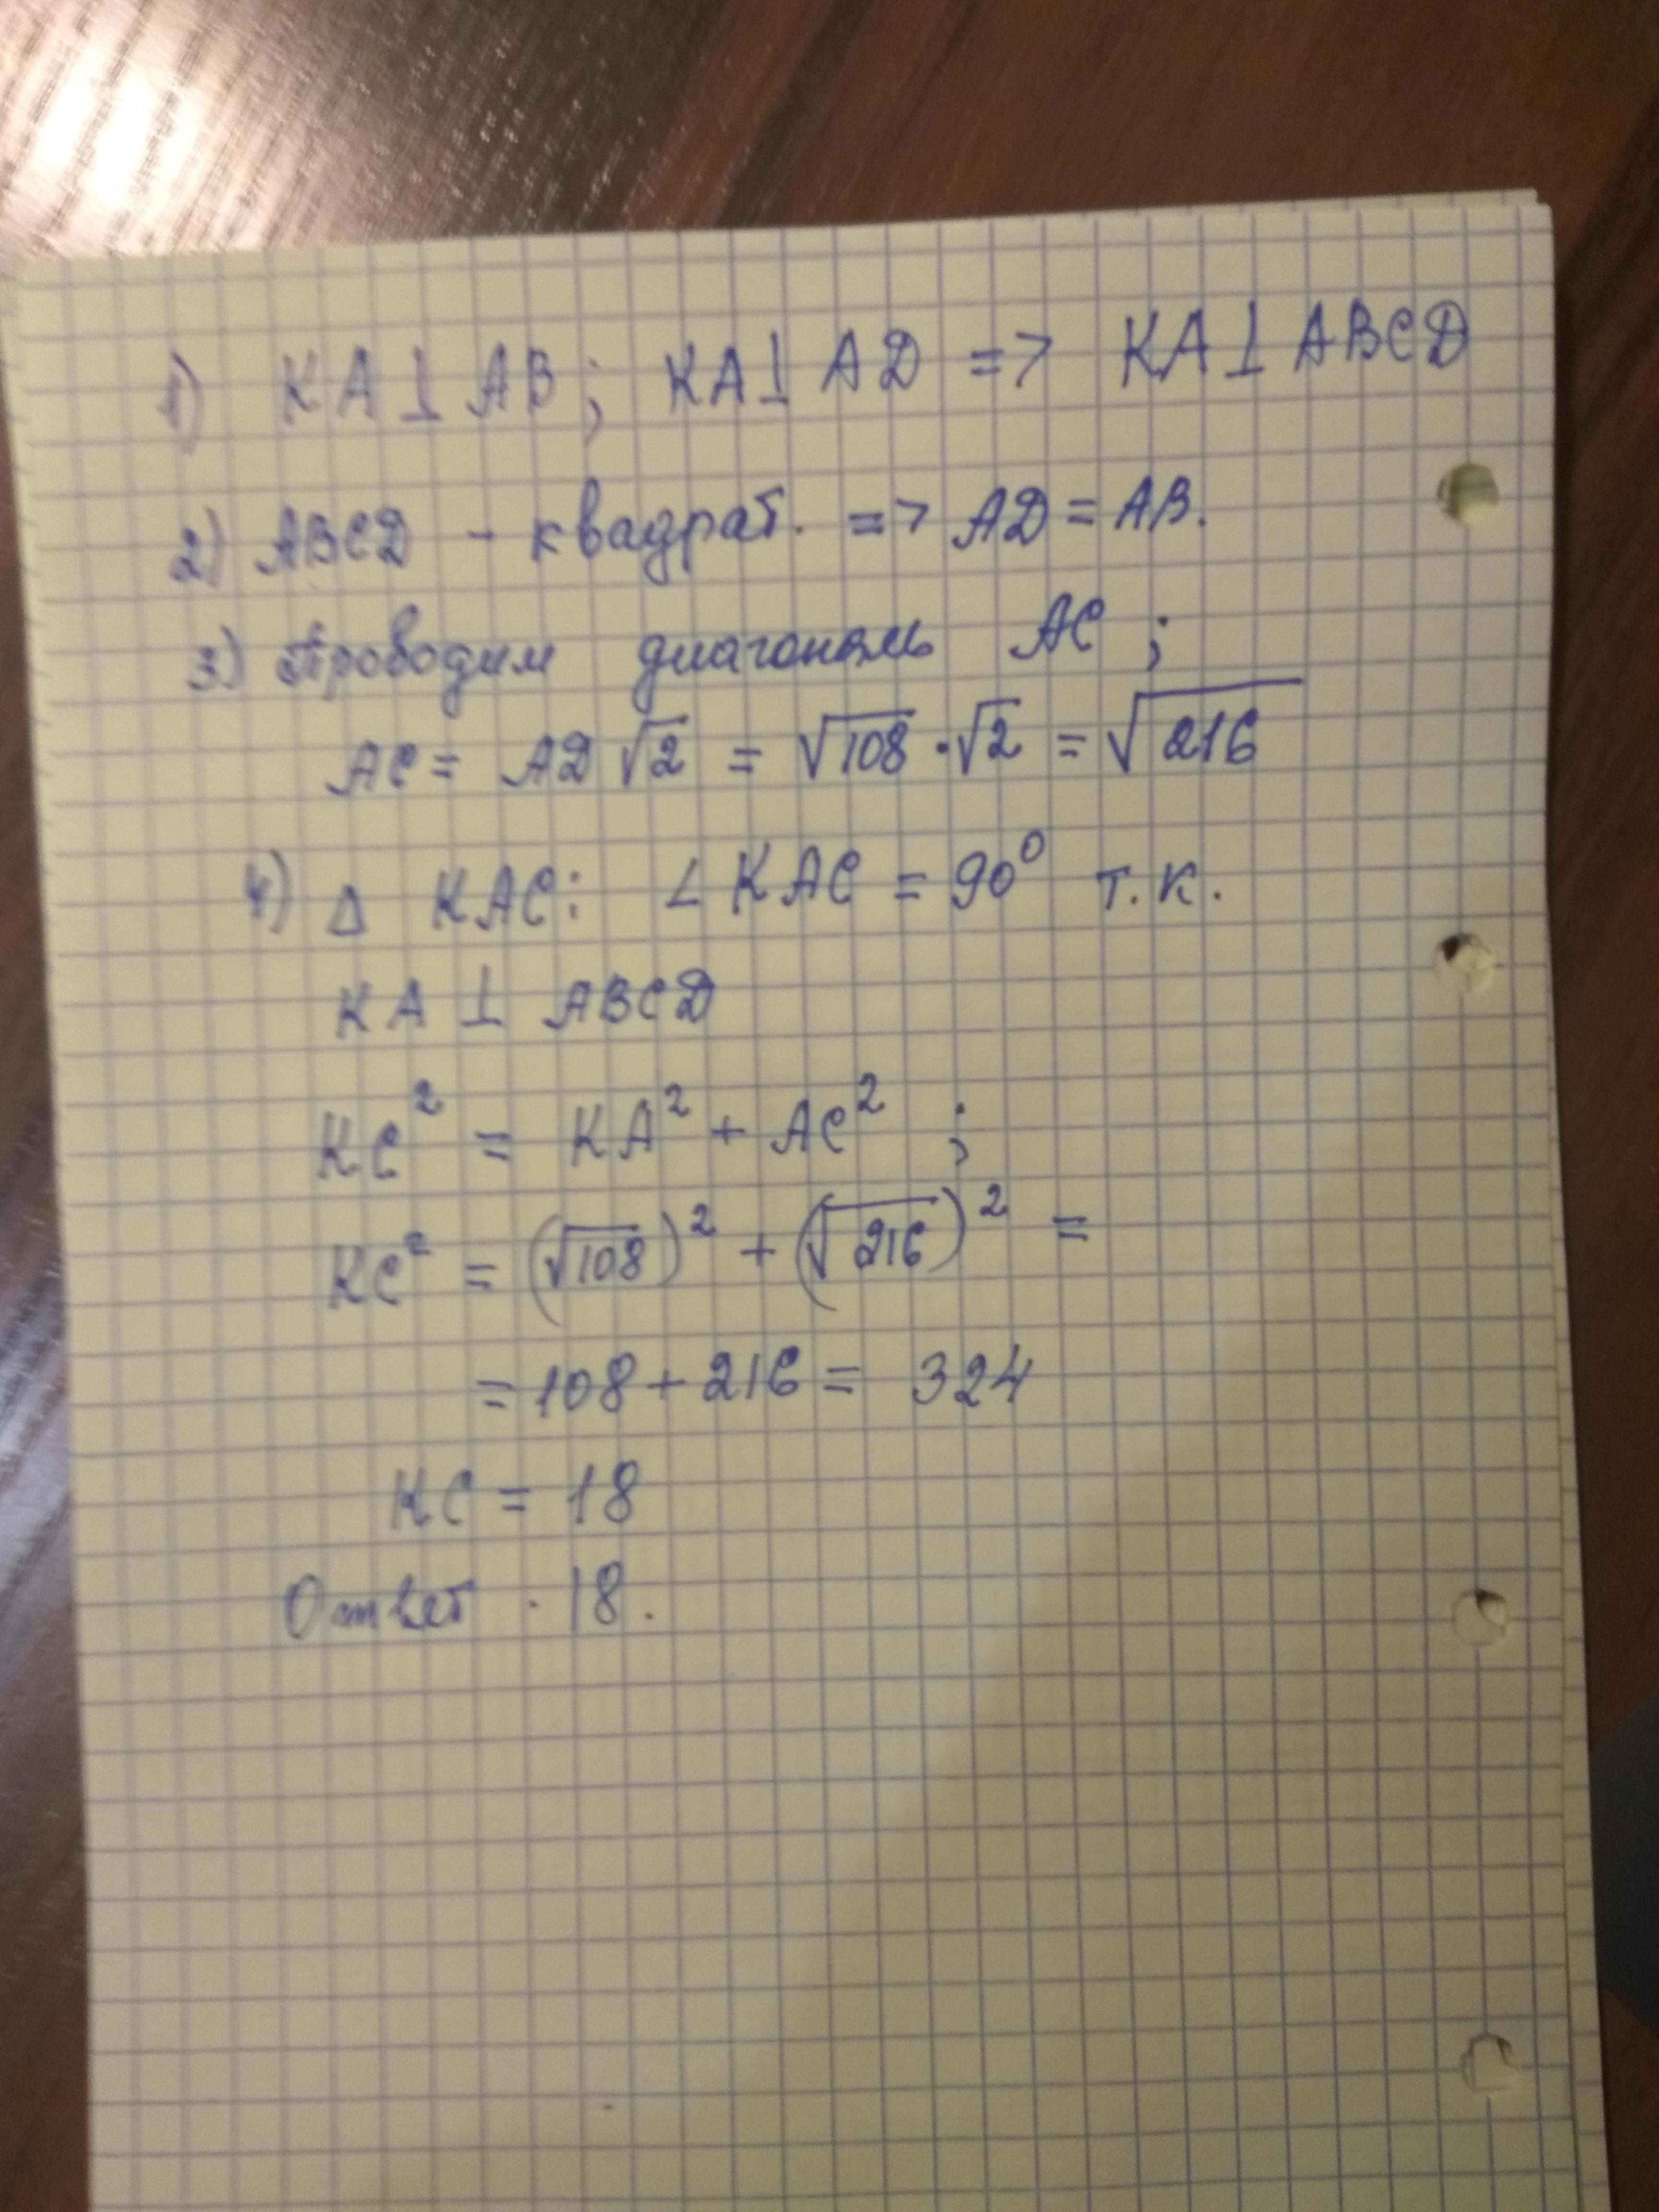 1) KA ⊥ AB ; KA ⊥ AD => KA ⊥ ABCD
2) ABCD - квадрат. => AD = AB.
3) Проводим диагональ AC ;
AC = AD √2 = √108 · √2 = √216
4) Δ KAC: ∠ KAC = 90° т.к.
KA ⊥ ABCD
KC² = KA² + AC² ;
KC² = (√108)² + (√216)² =
= 108 + 216 = 324
KC = 18
Ответ . 18.